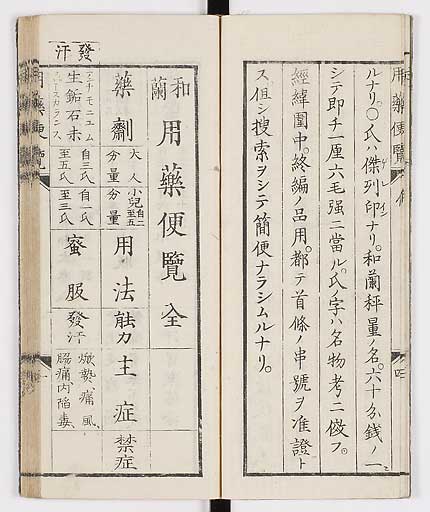 ルナリ。〇氏ハ傑列印ナリ。和蘭秤量ノ名。六十分銭ノ一
シテ即チ一厘六毛强ニ當ル。氏ノ字ハ名物考ニ傚フ。
經緯圍中。終編ノ品用。都テ首條ノ串號ヲ准證ト
ス但シ搜索ヲシテ簡便ナラシムルナリ。
用藥便覽
四
發汗
和蘭用藥便覽 全
藥劑
大人分量
小兒自二至五分量
用法
能力
主症
禁症
生鉐石末
自三氏至五氏
自一氏至三氏
蜜服
發汗
焮熱、痛風、
腸痛、内陷毒、
一